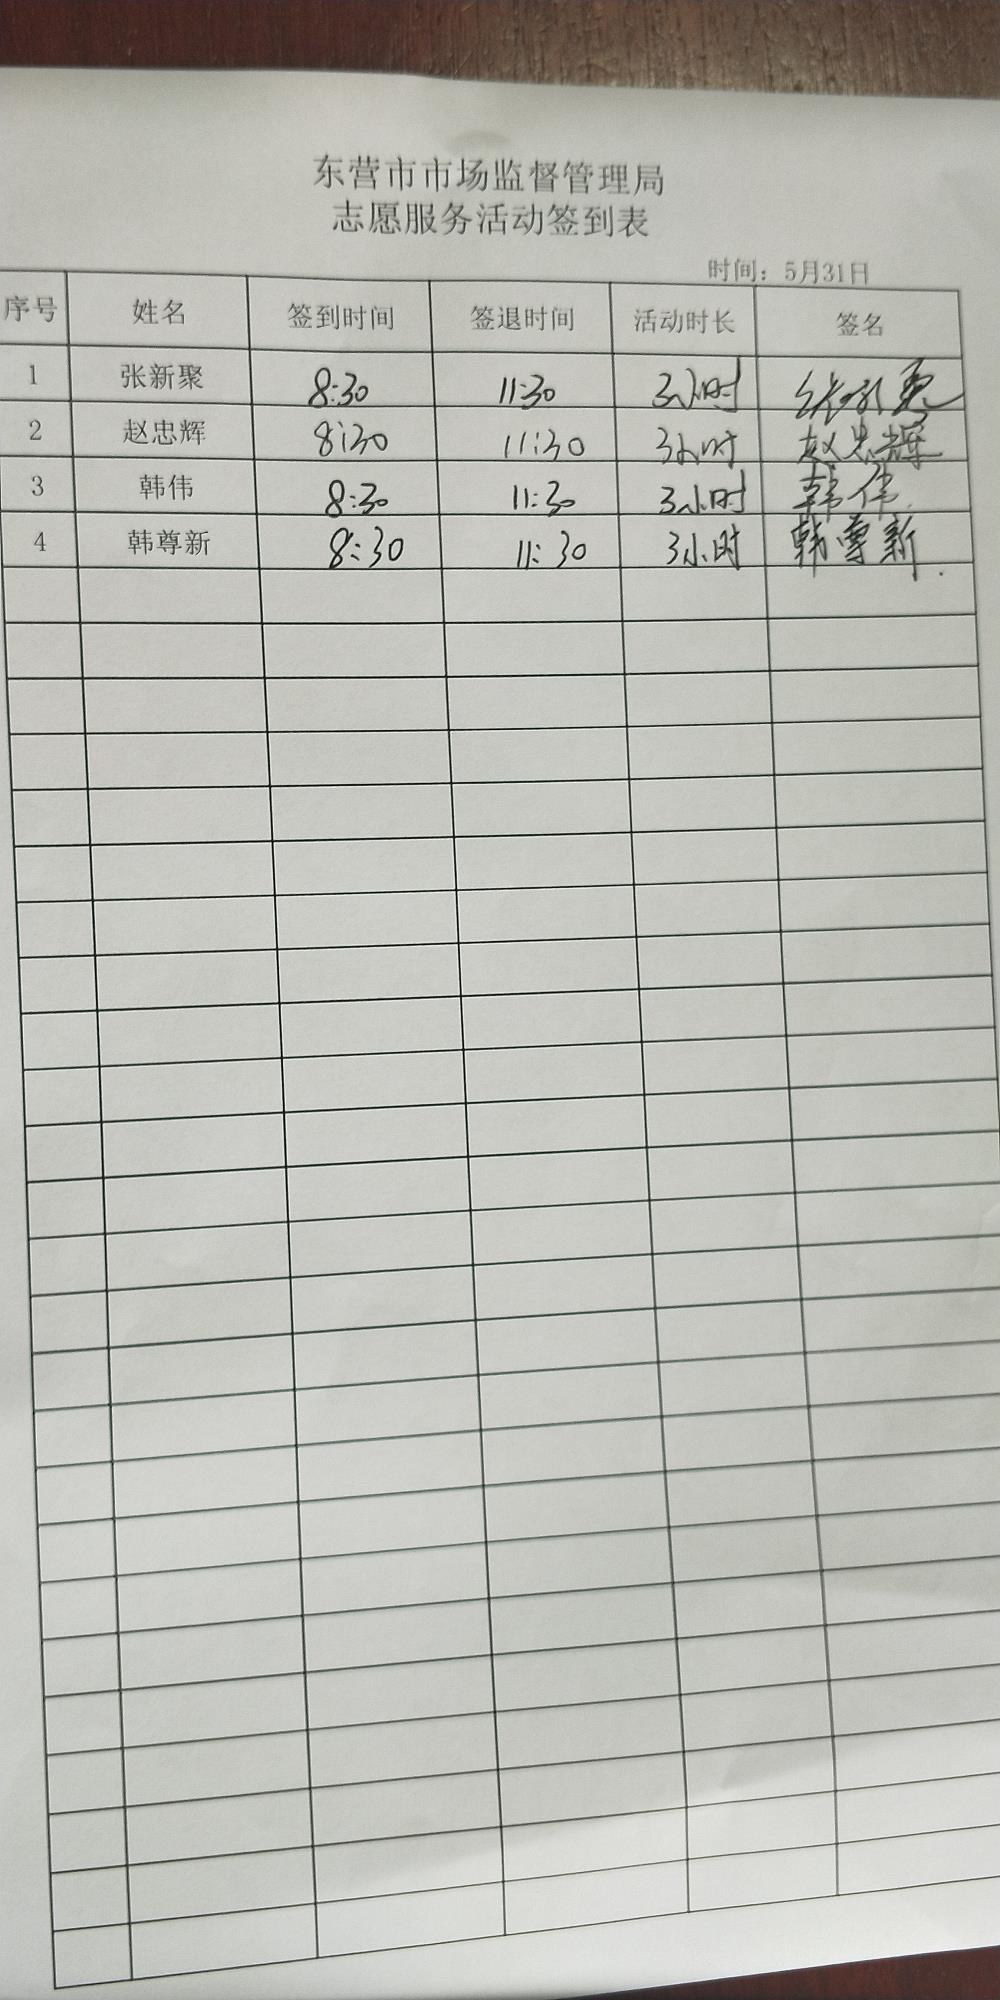 东营市市场监督管理局
志愿服务活动签到表
时间：5月31日
序号 姓名 签到时间 签退时间 活动时长 签名
1 张新聚 8:30 11:30 3小时 张新聚
2 赵忠辉 8:30 11:30 3小时 赵忠辉
3 韩伟 8:30 11:30 3小时 韩伟
4 韩尊新 8:30 11:30 3小时 韩尊新.